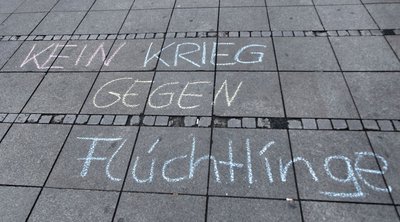 KEIN KRIEG
GEGEN
Flüchtlinge